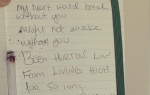 my heart would break
without you
Might not awake
without you
Been HURTIN' Low
From LIVING HIGH
for So long